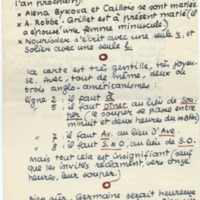 l'an prochain)
* Alena Bykova et Caillois se sont mariés
* A. Robbe-Grillet est à présent marié (il
a épousé une femme minuscule)
* Nourissier s'écrit avec une seule s, et
Soliès avec une seule l.
la carte est très gentille, très joyeu-
se. Avec, tout de même, deux ou
trois anglo-américanismes:
ligne 2: il faut à
" 5: il faut DÎNER au lieu de Sou-
per (le souper se place entre
minuit et deux heures du matin)
" 7: il faut Av. au lieu d'Ave.
" 8: il faut S.&O. au lieu de S.O.
Mais tout cela est insignifiant (sauf
que les invités risquent très
heures, leur souper.)
Bien sûr, Germaine serait heureuse